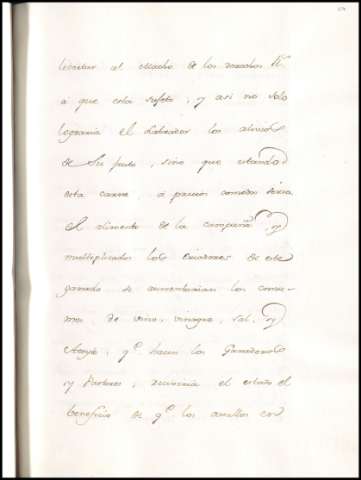 al de los R.^s
á que está sujeto, y asi no solo
lograria el Labrador los alivios
de su fruto, sino que estando
esta carne, á precios comodos seria
el alimento de la campaña, y
multiplicados los de este
ganado se aumentarian los consu-
mos de vino, vinagre, sal, y
Azeyte, q.^e hacen los Ganaderos
y Pastores, recibiria el estado el
beneficio de q.^e los con